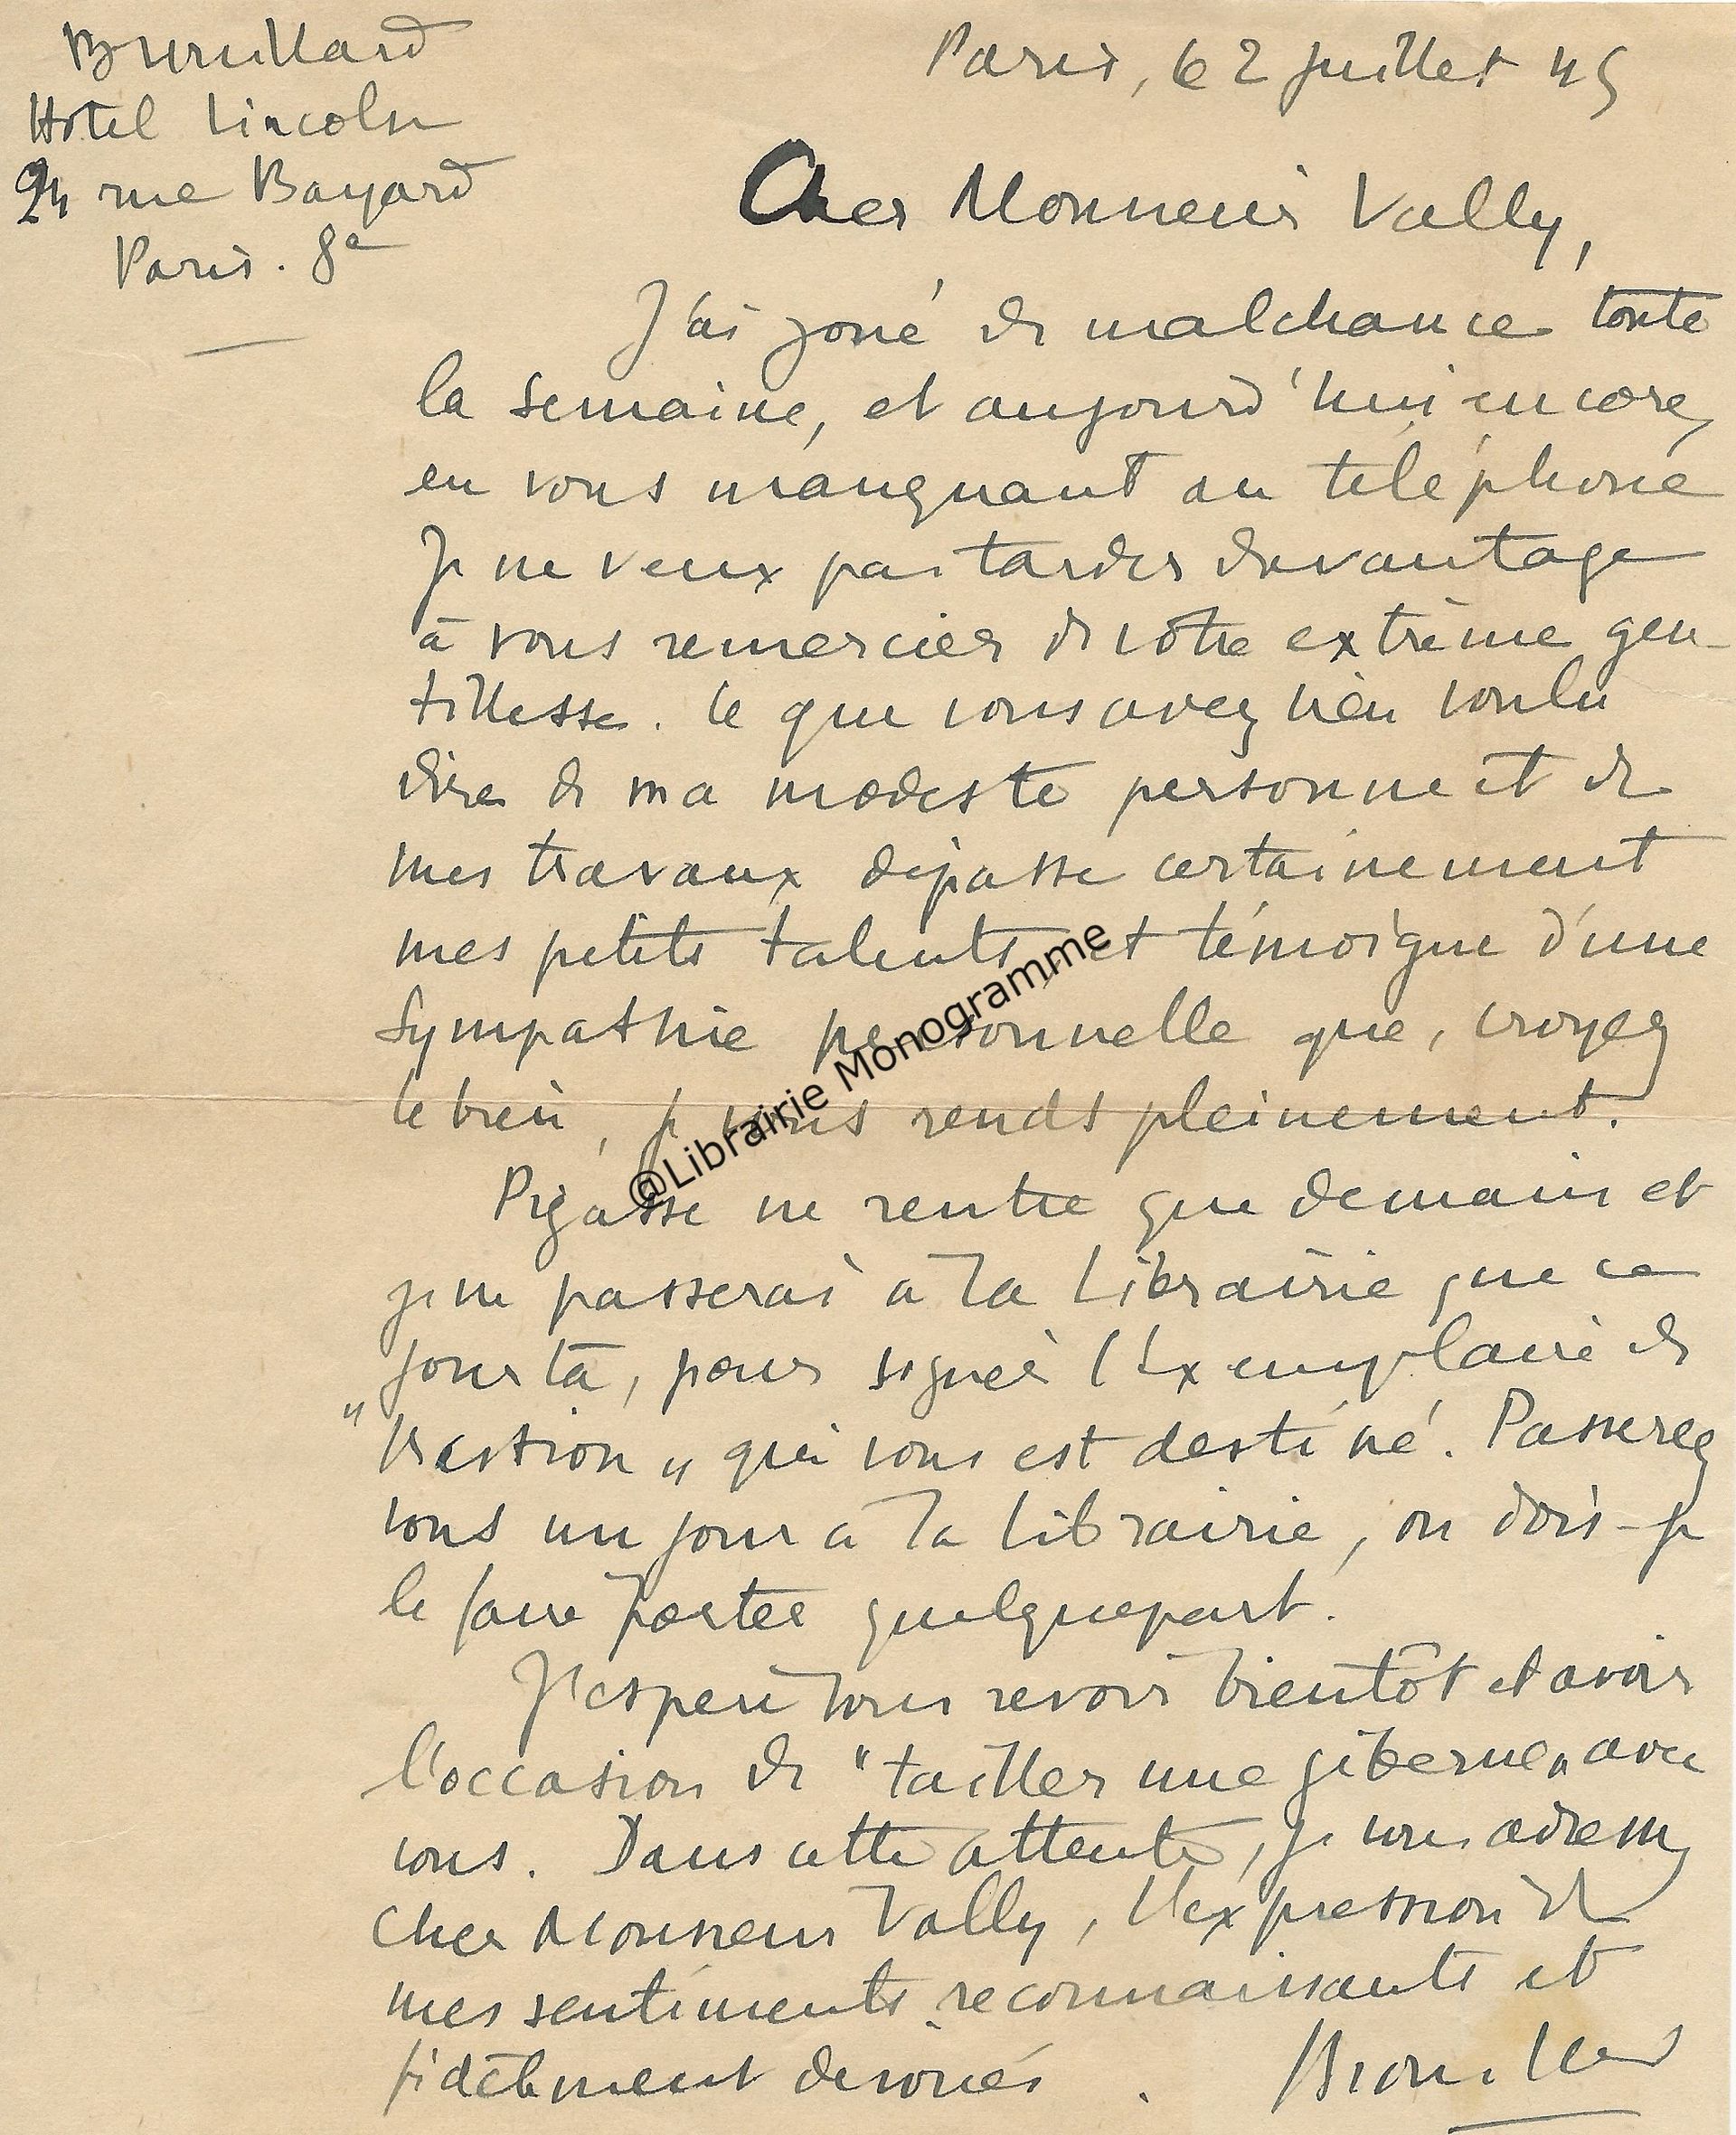 Brouillard
Hôtel Lincoln
24 rue Bayard
Paris. 8e
Paris, le 2 juillet 45
Cher Monsieur Vally,
J'ai joué de malchance toute
la semaine, et aujourd'hui encore,
en vous manquant au téléphone
Je ne veux pas tarder davantage
à vous remercier de votre extrême gen-
tillesse. Ce que vous avez bien voulu
dire de ma modeste personne et de
mes travaux dépasse certainement
mes petits talents, et témoigne d'une
sympathie personnelle que, croyez
le bien, je vous rends pleinement.
Pigasse ne rentre que demain et
je ne passerai à la librairie que ce
jour là, pour signer l'exemplaire de
"Bastion" qui vous est destiné. Passerez
vous un jour à la librairie, ou dois-je
le faire porter quelquepart.
J'espère vous revoir bientôt et avoir
l'occasion de "tailler une giberne" avec
vous. Dans cette attente, je vous adresse,
cher Monsieur Vally, l'expression de
mes sentiments reconnaissants et
fidèlement dévoués.
Brouillard
@Librairie Monogramme